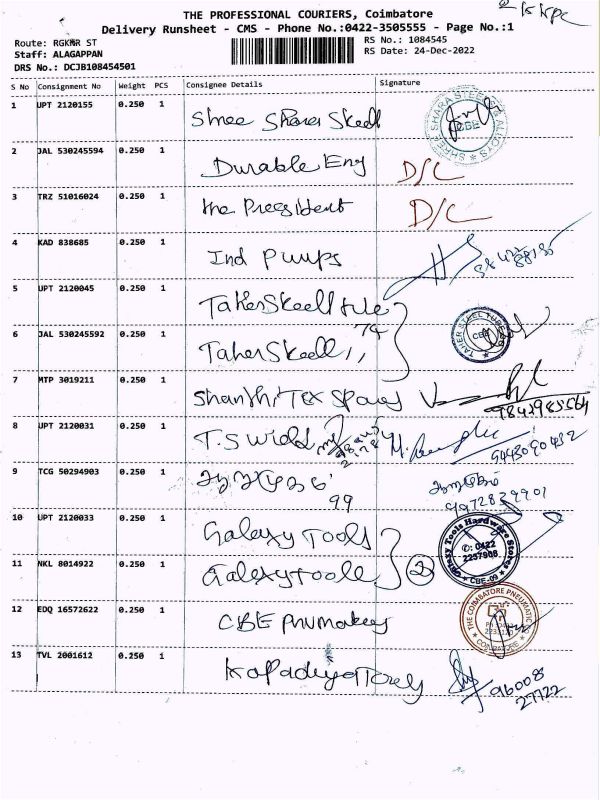 THE PROFESSIONAL COURIERS, Coimbatore
Delivery Runsheet - CMS - Phone No.:0422-3505555 - Page No.:1
Route: RGKMR ST
RS No.: 1084545
Staff: ALAGAPPAN
RS Date: 24-Dec-2022
DRS No.: DCJB108454501
S No Consignment No Weight PCS Consignee Details Signature
1 UPT 2120155 0.250 1
SHREE SHARA STEELS ALLOYS CBE
2 JAL 530245594 0.250 1 Durable Eng D/C
3 TRZ 51016024 0.250 1 the President D/C
4 KAD 838685 0.250 1 Ind Pumps
5 UPT 2120045 0.250 1
6 JAL 530245592 0.250 1
TAHER STEEL TUBES CBE
7 MTP 3019211 0.250 1 Shanthi Tex Spares
9842985564
8 UPT 2120031 0.250 1 T.S
9443090432
9 TCG 50294903 0.250 1
99
9972839901
10 UPT 2120033 0.250 1 Galaxy Tools
Galaxy Tools Hardware Stores
✆: 0422
2237908
CBE-09
11 NKL 8014922 0.250 1 2
12 EDQ 16572622 0.250 1 CBE
THE COIMBATORE PNEUMATIC
COIMBATORE
13 TVL 2001612 0.250 1
96008
27722